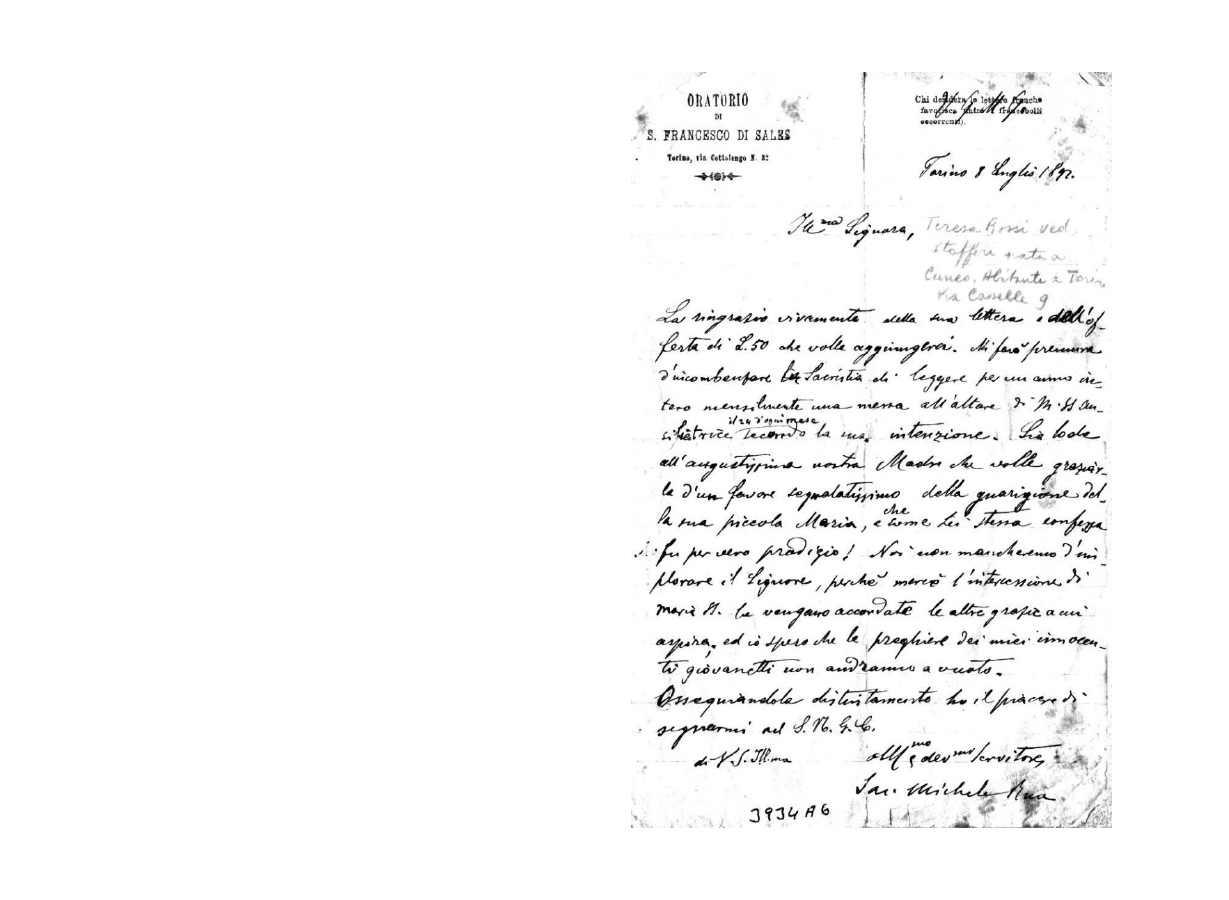 ORATORIO
DI
S. FRANCESCO DI SALES
Torino, via Cottolengo N. 32
Chi desidera le lettere franche
favorisca unire i francobolli
occorrenti).
Torino 8 Luglio 1892.
Ill.ma Signora,
Teresa Rossi ved.
Stofferi nata a
Cuneo. Abitante a Torino
Via Caselle 9
La ringrazio vivamente della sua lettera e dell'of-
ferta di L. 50 che volle aggiungervi. Mi farò premura
d'incombenzare la Sacristia di leggere per un anno in-
tero mensilmente una messa all'altare di M. SS. Au-
siliatrice il 24 d'ogni mese secondo la sua intenzione. Sia lode
all'augustissima nostra Madre che volle graziar-
la d'un favore segnalatissimo della guarigione del-
la sua piccola Maria, e che come Lei stessa confessa
fu per vero prodigio! Noi non mancheremo d'im-
plorare il Signore, perchè mercè l'intercessione di
Maria SS. Le vengano accordate le altre grazie a cui
aspira, ed io spero che le preghiere dei miei innocen-
ti giovanetti non andranno a vuoto.
Ossequiandola distintamente ho il piacere di
segnarmi nel S. N. G. C.
di V. S. Ill.ma
obbl.mo e dev.mo servitore
Sac. Michele Rua
3934 A6